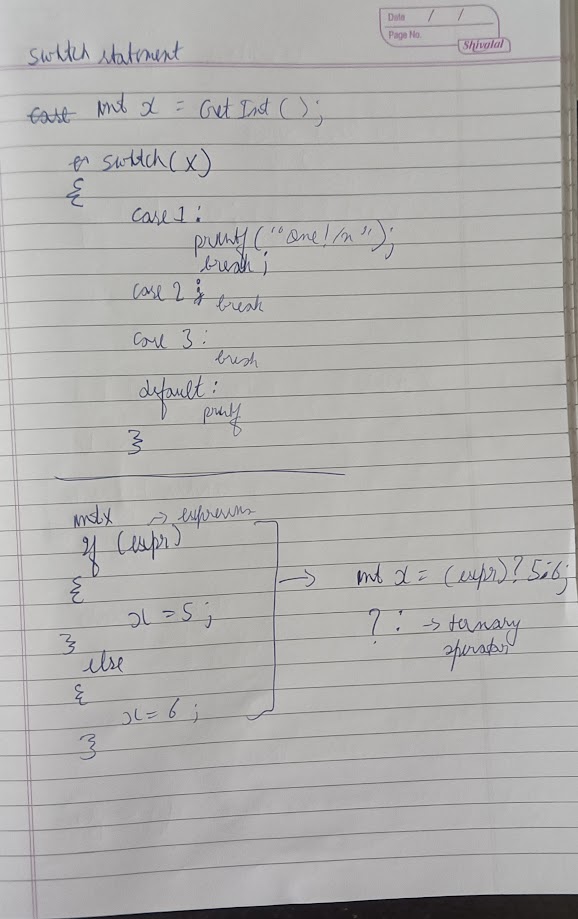 Date / /
Page No.
Shivalal
switch statement
case int x = Get Int ( );
switch(x)
{
case 1 :
printf ("One!/n");
break;
case 2 :
break
case 3 :
break
default :
printf
}
int x → expression
if (expr)
{
x = 5 ;
}
else
{
x = 6 ;
}
→ int x = (expr) ? 5:6;
? : → ternary
operator